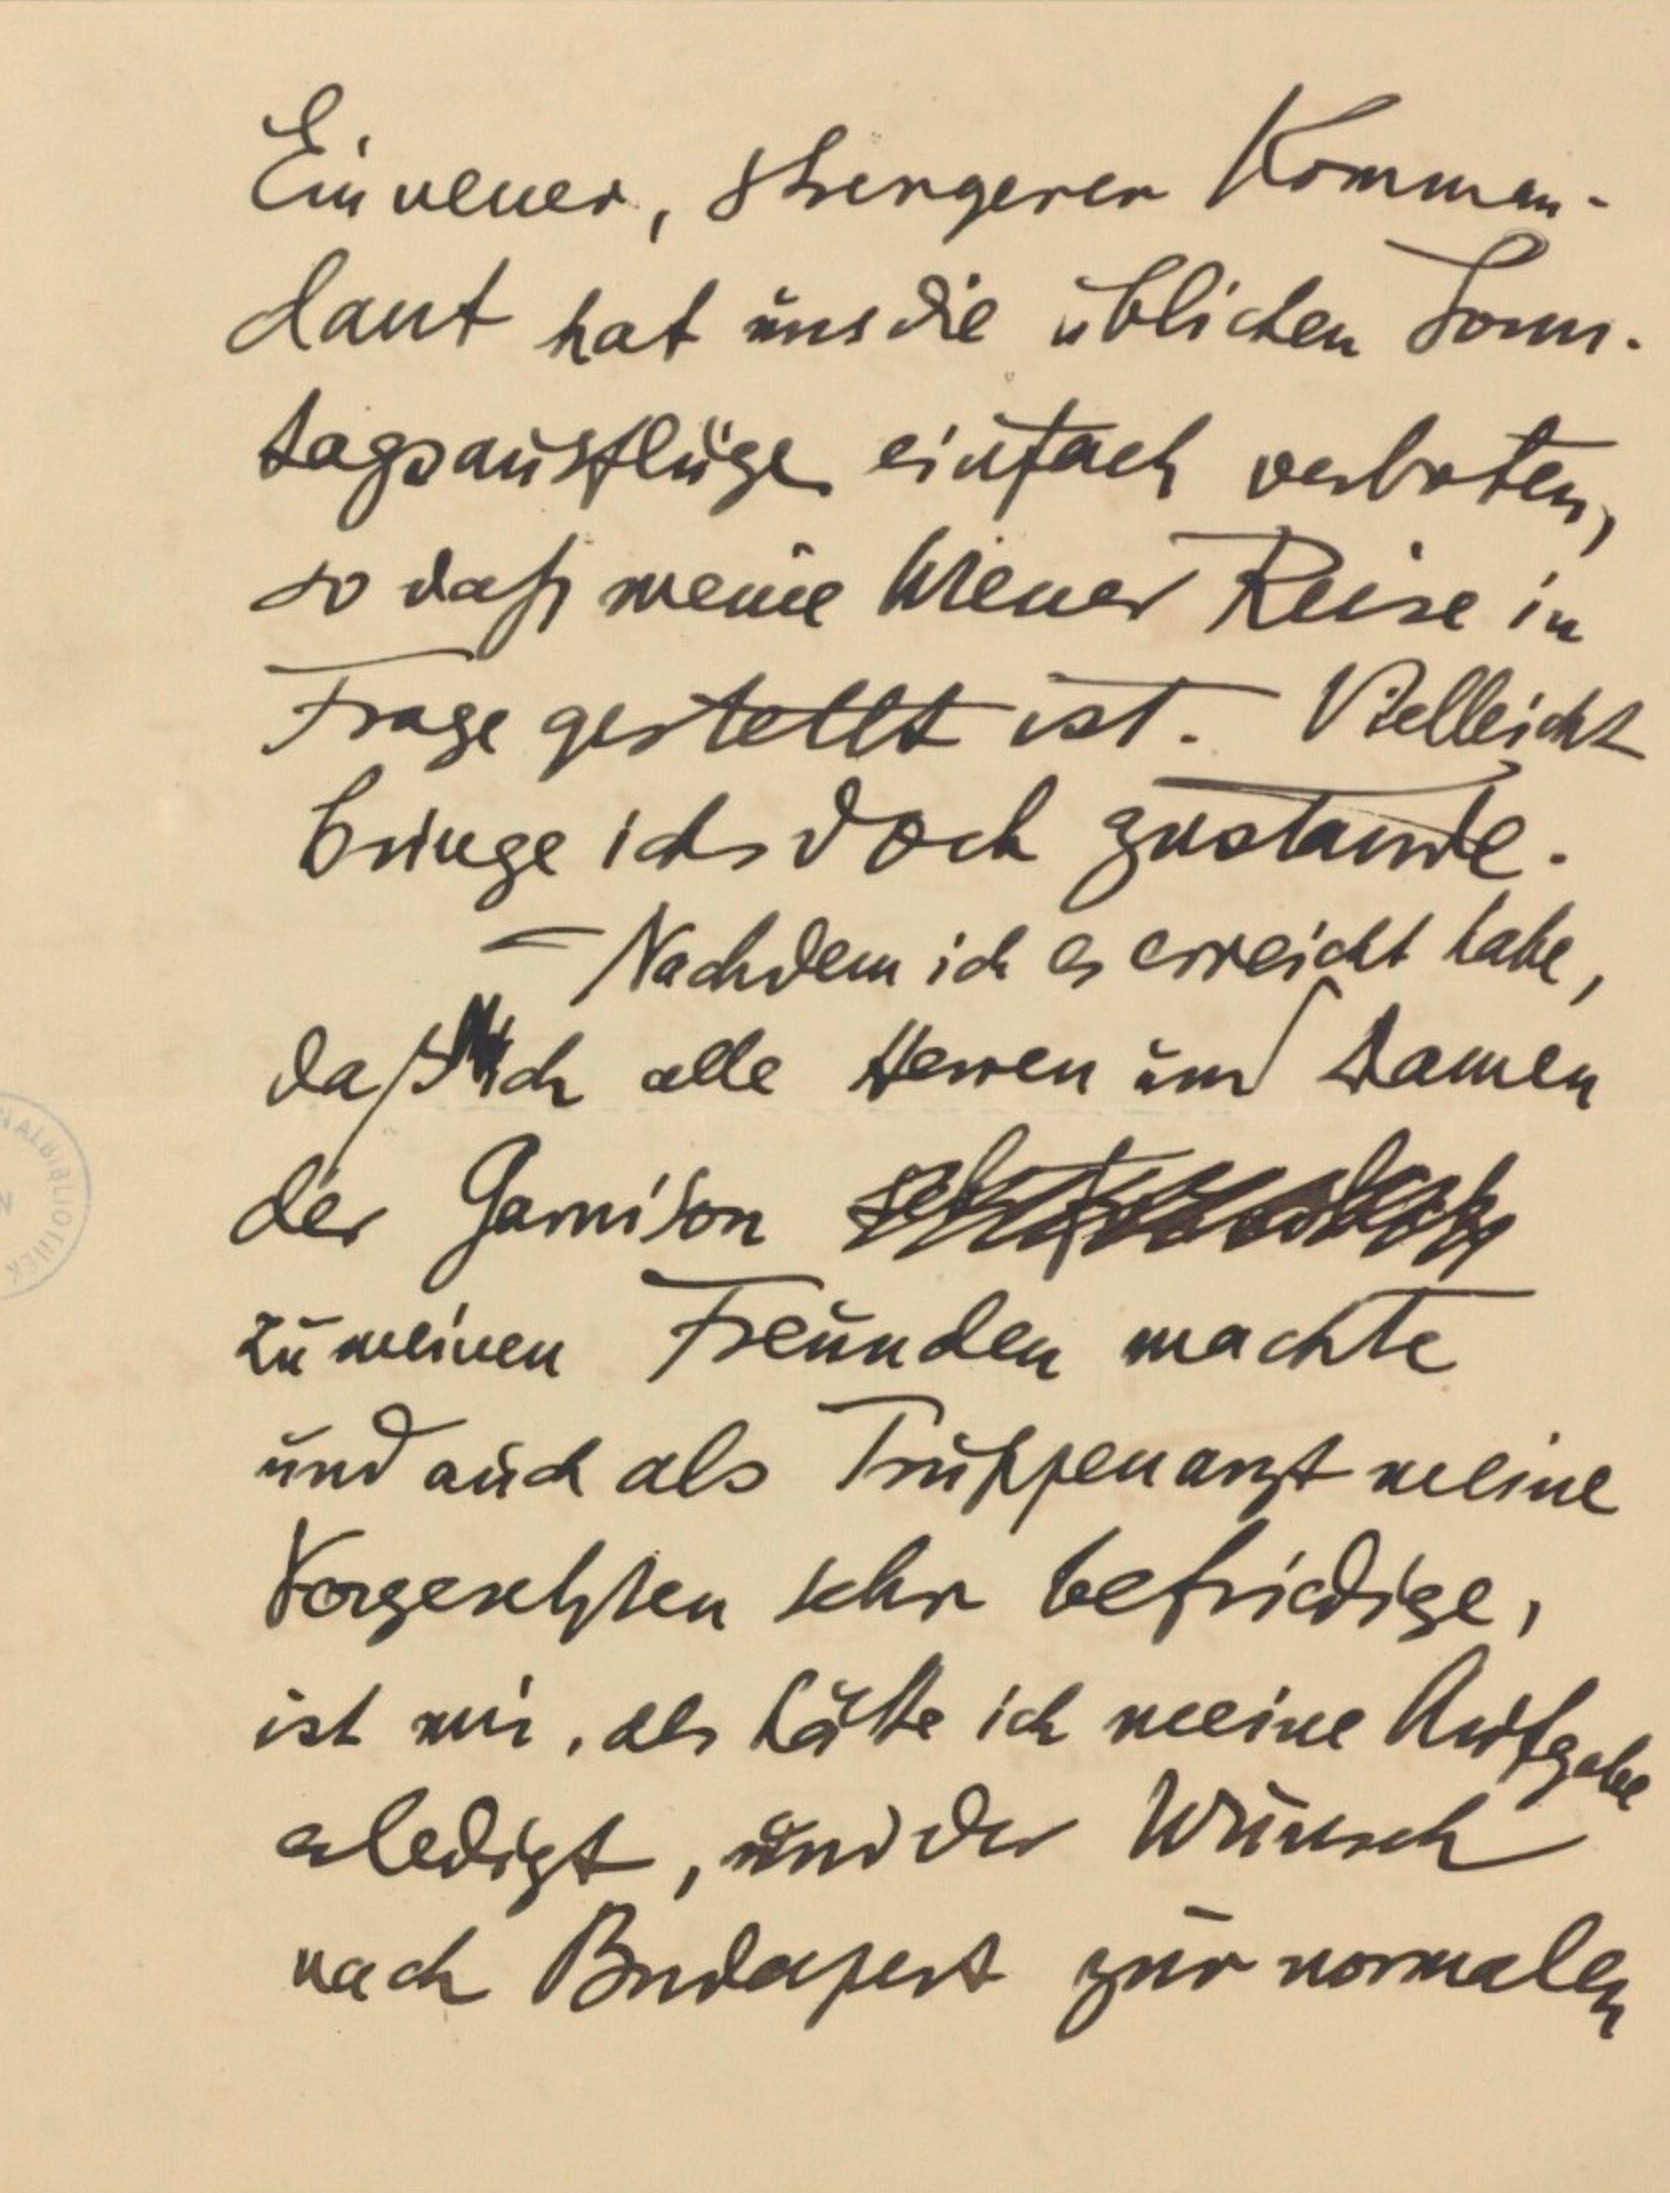 Ein neuer, strengerer Komman-
dant hat uns die üblichen Sonn-
tagsausflüge einfach verboten,
so daß meine Wiener Reise in
Frage gestellt ist. Vielleicht
bringe ichs doch zustande.
– Nachdem ich es erreicht habe,
daß ich alle Herren und Damen
der Garnison
zu meinen Freunden machte
und auch als Truppenarzt meine
Vorgesetzten sehr befriedige,
ist mir, als hätte ich meine Aufgabe
erledigt, und der Wunsch
nach Budapest zur normalen